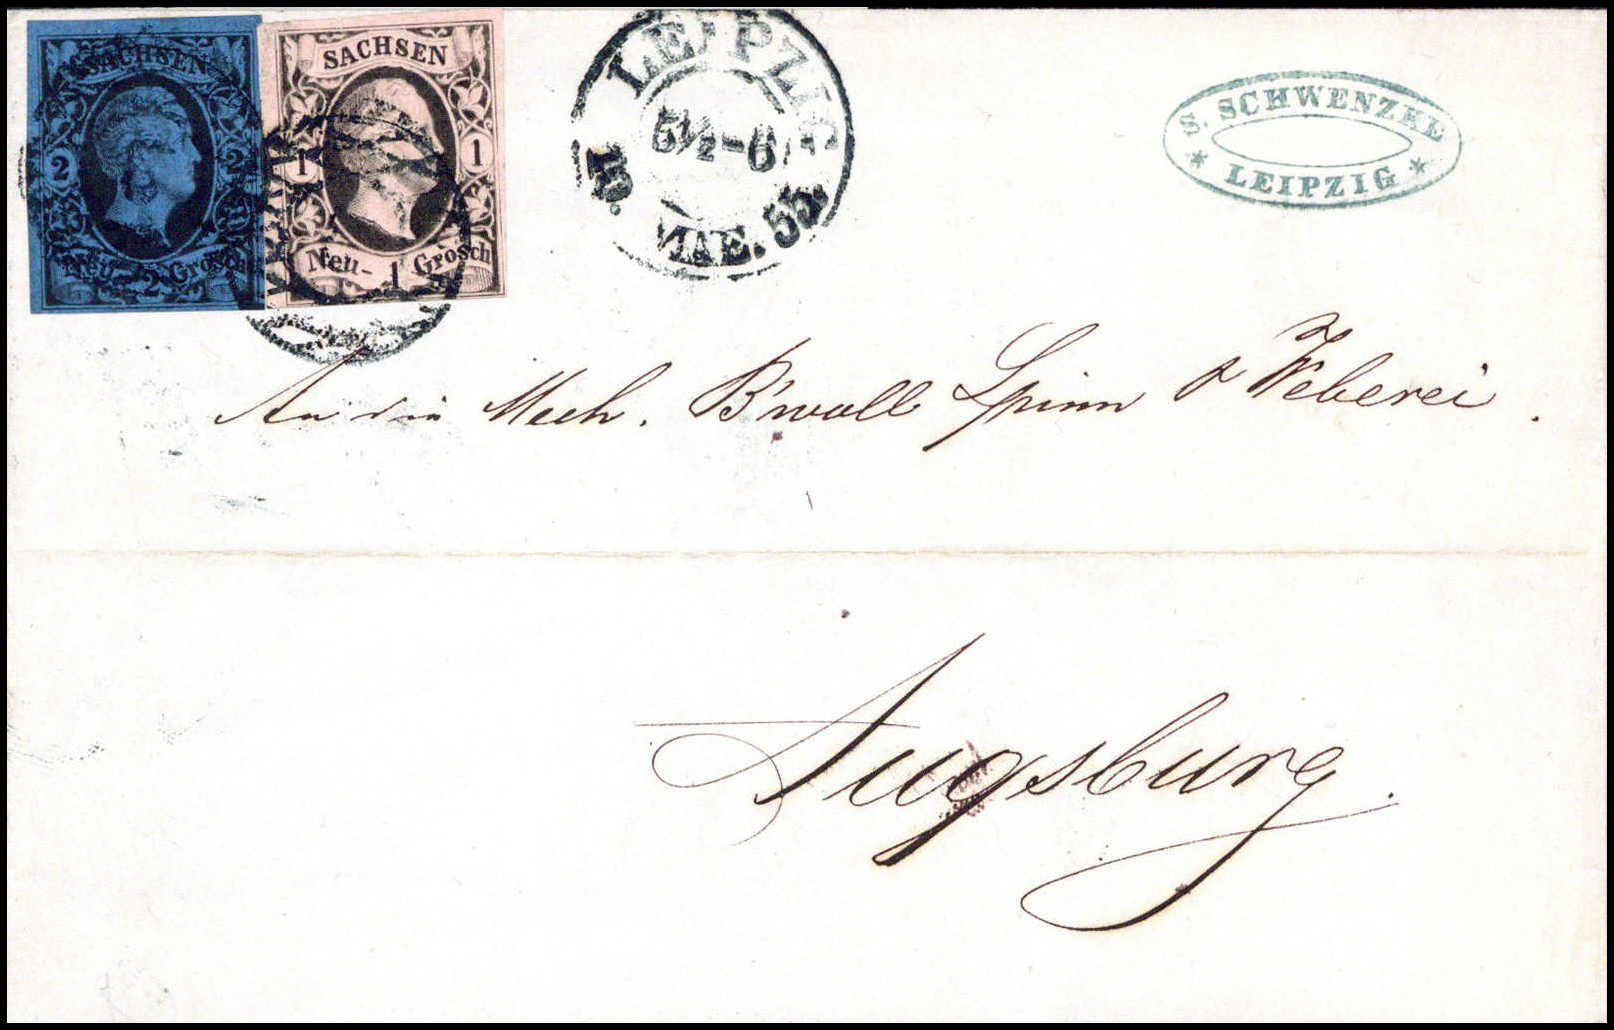 SACHSEN
2 2
Neu- 2 Grosch
SACHSEN
1 1
Neu- 1 Grosch
LEIPZIG
5½-6
MAE. 55.
S. SCHWENZKE
* LEIPZIG *
An die Mech. B'woll Spinn & Weberei.
Augsburg.